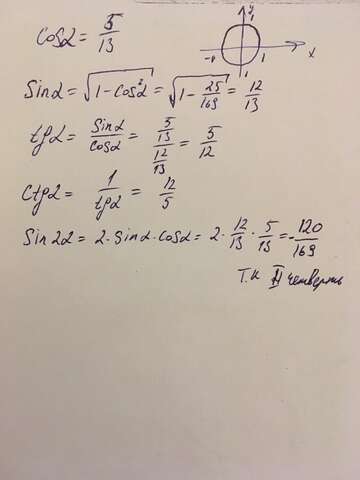 cosα = 5/13
y
1
-1 1 x
1
Sinα = √(1 - cos²α) = √(1 - 25/169) = 12/13
tgα = Sinα/cosα = (5/13)/(12/13) = 5/12
Ctgα = 1/tgα = 12/5
Sin2α = 2·Sinα·cosα = 2·12/13·5/13 = -120/169
т.к II четверть